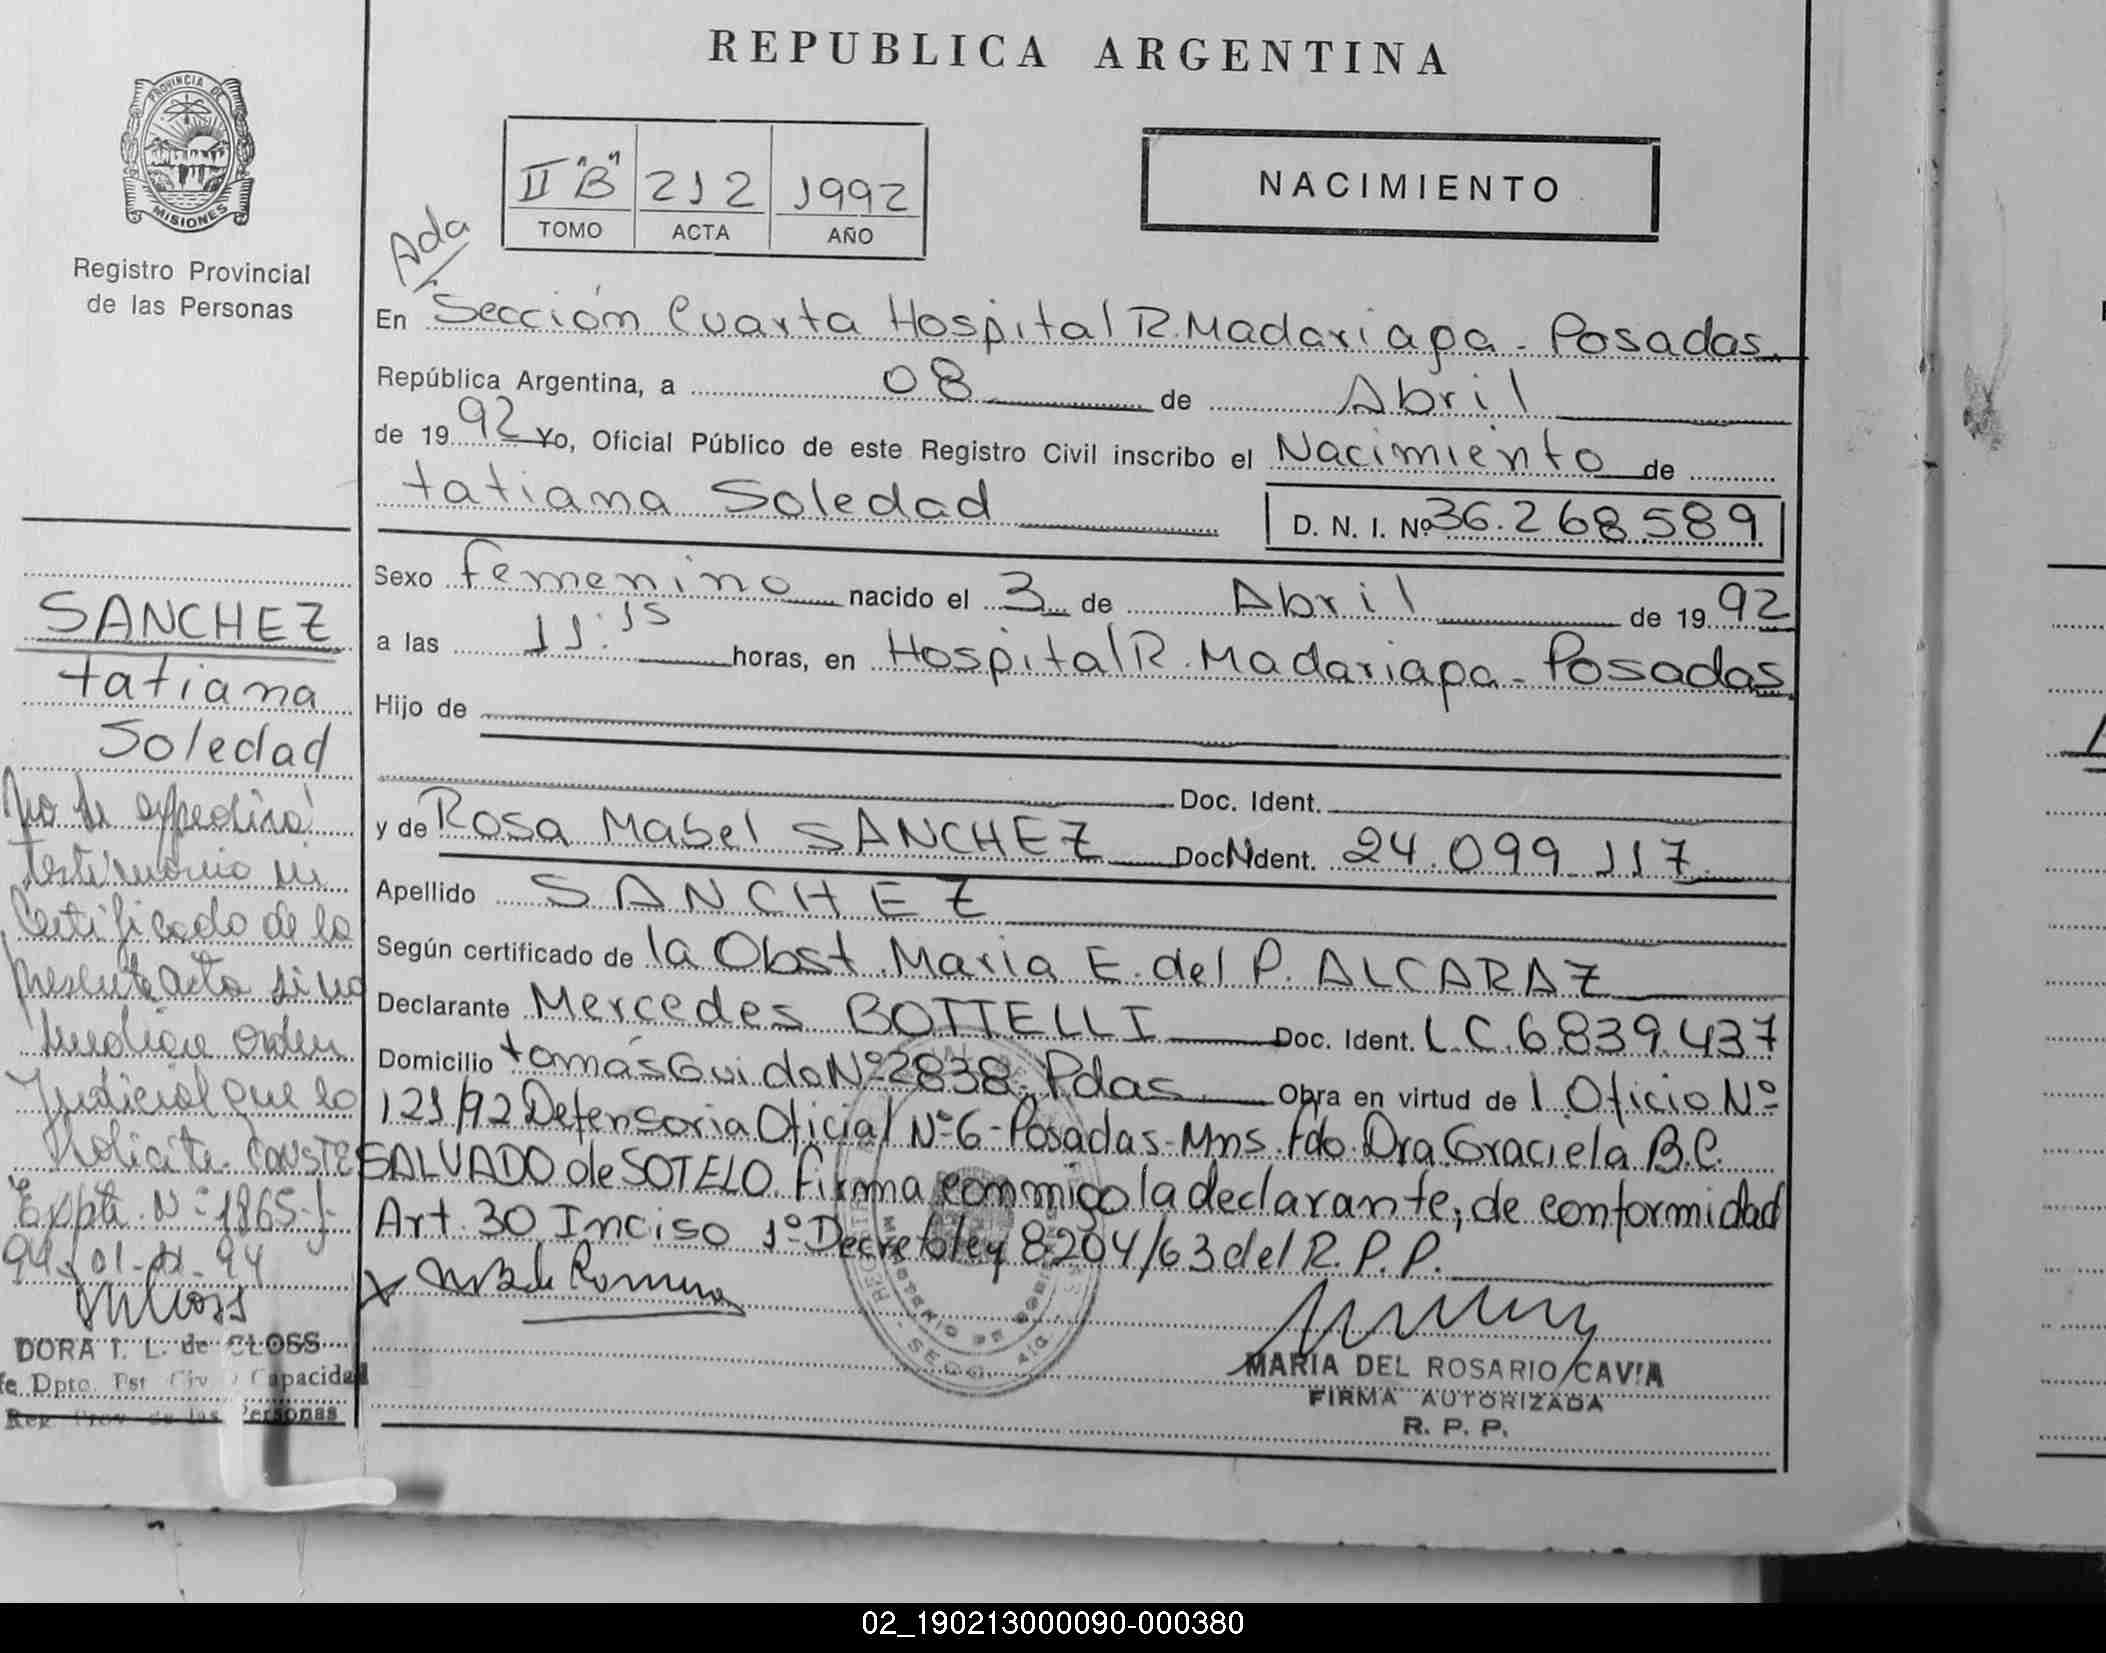 REPUBLICA ARGENTINA
PROVINCIA DE
MISIONES
Registro Provincial
de las Personas
II "B" 212 1992
TOMO ACTA AÑO
NACIMIENTO
Ada
En Sección Cuarta Hospital R. Madariaga - Posadas
República Argentina, a 08 de Abril
de 1992 Yo, Oficial Público de este Registro Civil inscribo el Nacimiento de
tatiana Soledad D. N. I. Nº 36.268.589
Sexo femenino nacido el 3 de Abril de 1992
a las 11:15 horas, en Hospital R. Madariaga - Posadas
Hijo de
Doc. Ident.
y de Rosa Mabel SANCHEZ Doc. Ident. 24.099.117
Apellido SANCHEZ
Según certificado de la Obst. Maria E. del P. ALCARAZ
Declarante Mercedes BOTTELLI Doc. Ident. L.C. 6.839.437
Domicilio tomás Guido Nº 2838. Pdas Obra en virtud de 1 Oficio Nº
121/92 Defensoria Oficial Nº 6 - Posadas - Mns. fdo. Dra. Graciela B.C.
SALVADO de SOTELO. Firma conmigo la declarante, de conformidad
Art. 30 Inciso 1º Decreto ley 8204/63 del R.P.P.
MARIA DEL ROSARIO CAVIA
FIRMA AUTORIZADA
R. P. P.
SANCHEZ
tatiana
Soledad
No se expedirá
testimonio ni
Certificado de la
presente acta si no
mediare orden
Judicial que lo
Solicite. CONSTE
Expte. Nº 1865-J-
94. 01-11-94
DORA T. L. de CLOSS
fe Dpto. Est. Civ. y Capacidad
Reg. Prov. de las Personas
02_190213000090-000380